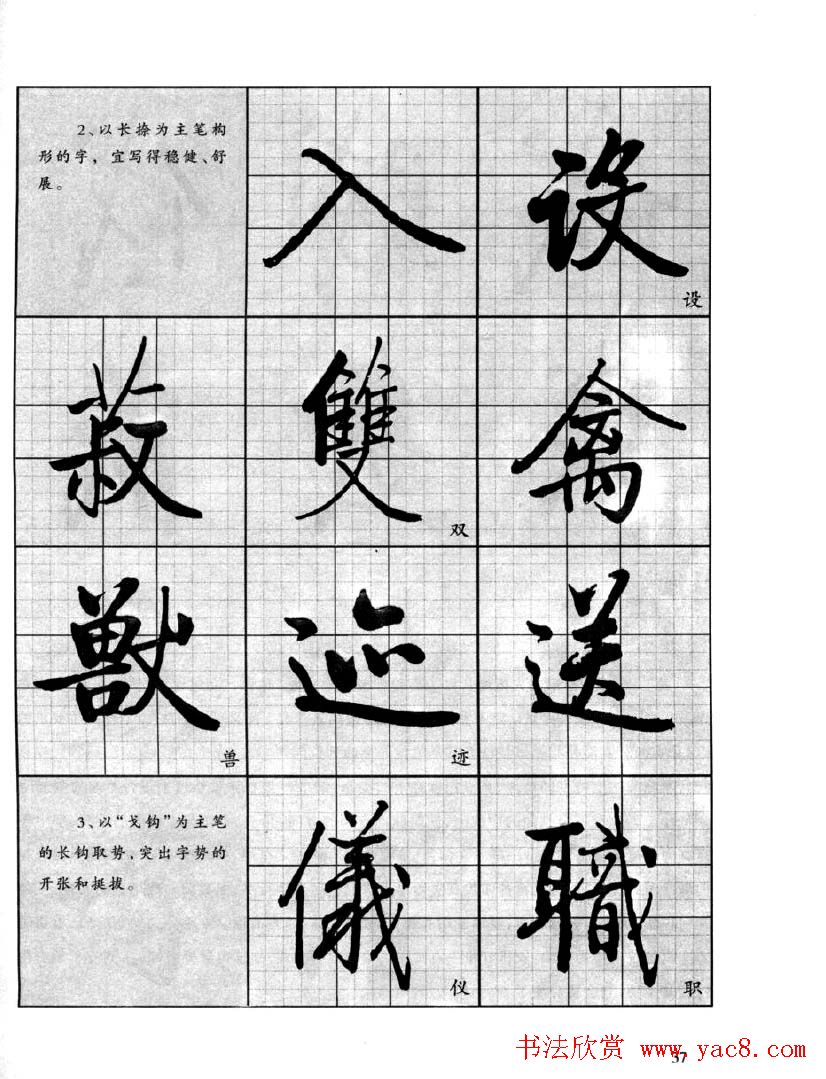 2、以长捺为主笔构
形的字，宜写得稳健、舒
展。
入
設
设
菽
雙
双
禽
獸
兽
迹
迹
送
3、以“戈钩”为主笔
的长钩取势，突出字势的
开张和挺拔。
儀
仪
職
职
37
书法欣赏 www.yac8.com